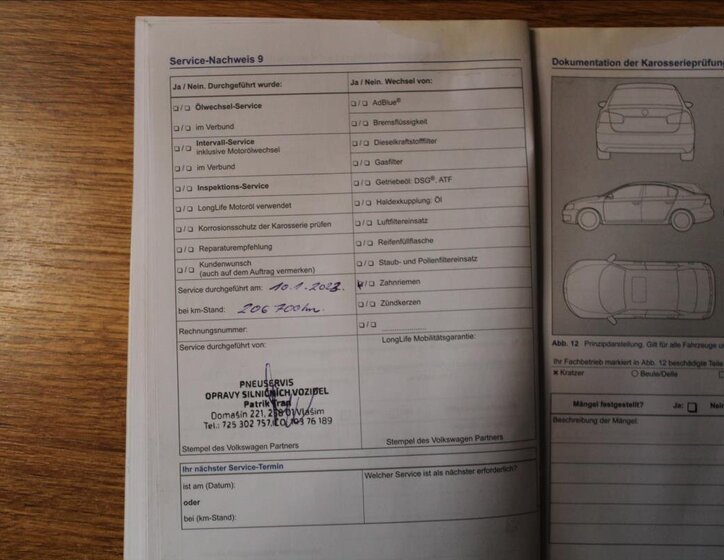 Service-Nachweis 9
Ja / Nein. Durchgeführt wurde:
❑/❑ Ölwechsel-Service
❑/❑ im Verbund
❑/❑ Intervall-Service
inklusive Motorölwechsel
❑/❑ im Verbund
❑/❑ Inspektions-Service
❑/❑ LongLife Motoröl verwendet
❑/❑ Korrosionsschutz der Karosserie prüfen
❑/❑ Reparaturempfehlung
❑/❑ Kundenwunsch
(auch auf dem Auftrag vermerken)
Service durchgeführt am: 10.1.2023.
bei km-Stand: 206 700 km.
Rechnungsnummer:
Service durchgeführt von:
PNEUSERVIS
OPRAVY SILNIČNÍCH VOZIDEL
Patrik
Domašín 221, Vlašim
Tel.: 725 302 757, 76 189
Stempel des Volkswagen Partners
Ja / Nein. Wechsel von:
❑/❑ AdBlue®
❑/❑ Bremsflüssigkeit
❑/❑ Dieselkraftstofffilter
❑/❑ Gasfilter
❑/❑ Getriebeöl: DSG®, ATF
❑/❑ Haldexkupplung: Öl
❑/❑ Luftfiltereinsatz
❑/❑ Reifenfüllflasche
❑/❑ Staub- und Pollenfiltereinsatz
❑/❑ Zahnriemen
❑/❑ Zündkerzen
❑/❑
LongLife Mobilitätsgarantie:
Stempel des Volkswagen Partners
Ihr nächster Service-Termin
ist am (Datum):
oder
bei (km-Stand):
Welcher Service ist als nächster erforderlich?
Dokumentation der Karosserieprüfung
Abb. 12 Prinzipdarstellung. Gilt für alle Fahrzeuge
Ihr Fachbetrieb markiert in Abb. 12 beschädigte Teile
× Kratzer ○ Beule/Delle
Mängel festgestellt? Ja: ❑ Nein
Beschreibung der Mängel: